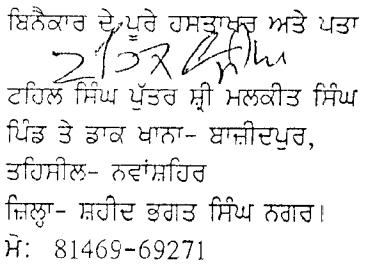 ਬਿਨੈਕਾਰ ਦੇ ਪੂਰੇ ਹਸਤਾਖਰ ਅਤੇ ਪਤਾ
ਟਹਿਲ ਸਿੰਘ ਪੁੱਤਰ ਸ਼੍ਰੀ ਮਲਕੀਤ ਸਿੰਘ
ਪਿੰਡ ਤੇ ਡਾਕ ਖਾਨਾ- ਬਾਜ਼ੀਦਪੁਰ,
ਤਹਿਸੀਲ- ਨਵਾਂਸ਼ਹਿਰ
ਜ਼ਿਲ੍ਹਾ- ਸ਼ਹੀਦ ਭਗਤ ਸਿੰਘ ਨਗਰ।
ਮੋ: 81469-69271